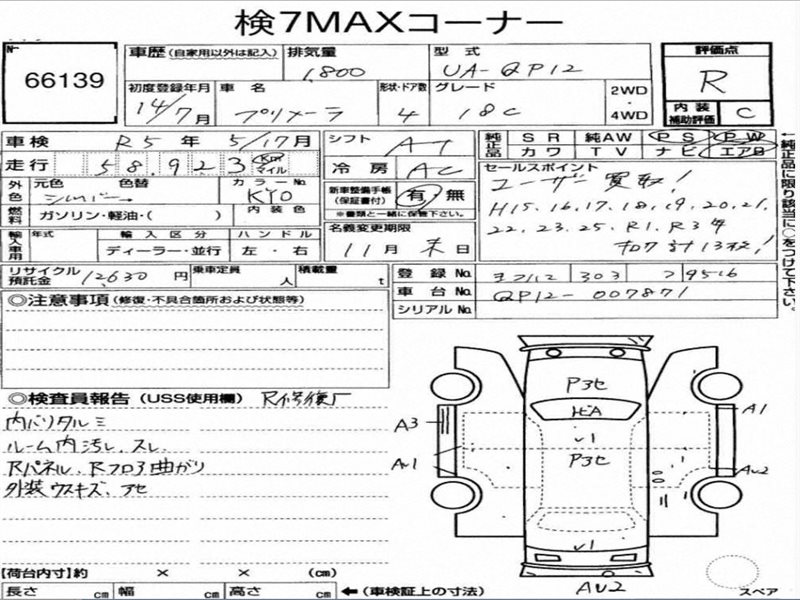 検7MAXコーナー
№ 66139
車歴 (自家用以外は記入) 排気量 1,800 型式 UA-QP12 評価点 R
初度登録年月 14/7月 車名 プリメーラ 形状・ドア数 4 グレード 18C 2WD・4WD 内装補助評価 C
車検 R5年 5/17月 シフト AT 純正品 SR 純AW PS PW
カワ TV ナビ エアB
走行 58,923 Km マイル 冷房 AC
セールスポイント
ユーザー買取!
H15.16.17.18.19.20.21.
22.23.25.R1.R3年
計13枚!
外色 元色 シルバー 色替 カラーNo. KY0 新車整備手帳(保証書付) 有・無
※書類と一緒に保管下さい。
燃料 ガソリン・軽油・( ) 内装色
名義変更期限
11月末日
輸入車用 年式 輸入区分 ハンドル
ディーラー・並行 左・右
リサイクル預託金 12,630円 乗車定員 人 積載量 t
登録No. 303 フ 9516
車台No. QP12-007871
シリアルNo.
→純正品に限り該当に○をつけて下さい。
◎注意事項 (修復・不具合箇所および状態等)
◎検査員報告 (USS使用欄) R修復歴
内バリタルミ
ルーム内汚レ、スレ
Rパネル、Rフロア曲がり
外装ウスキズ、アセ
P3セ
ヒA
v1
P3セ
v1
A3
Av1
A1
Av2
Av2
スペア
【荷台内寸】約 × × (cm)
長さ cm 幅 cm 高さ cm ←(車検証上の寸法)